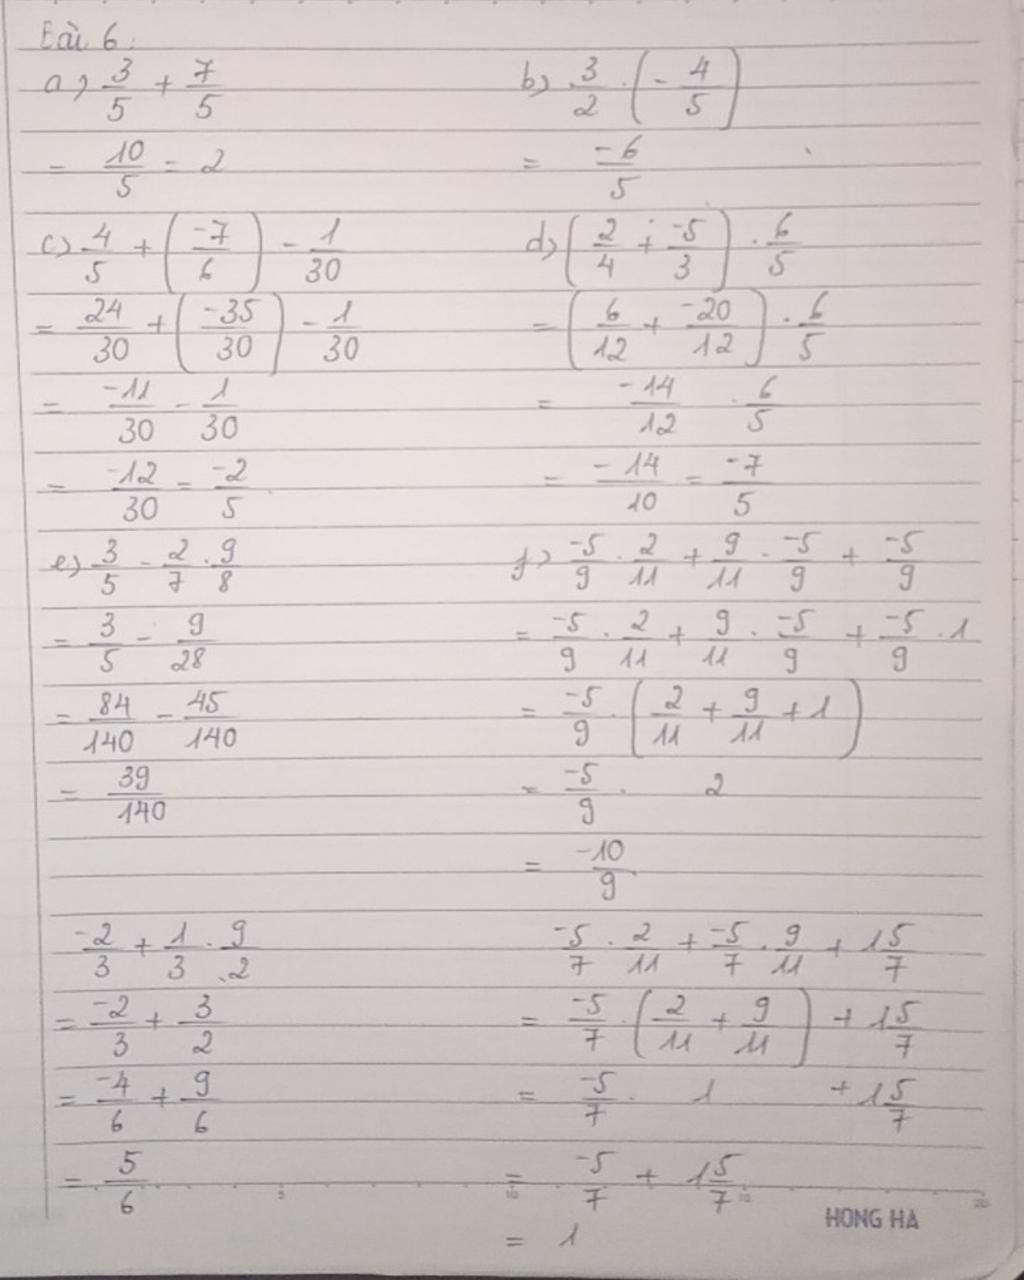 Bài 6:
a) 3/5 + 7/5
= 10/5 = 2
b) 3/2 . (- 4/5)
= -6/5
c) 4/5 + (-7/6) - 1/30
= 24/30 + (-35/30) - 1/30
= -11/30 - 1/30
= -12/30 = -2/5
d) (2/4 + -5/3) . 6/5
= (6/12 + -20/12) . 6/5
= -14/12 . 6/5
= -14/10 = -7/5
e) 3/5 - 2/7 . 9/8
= 3/5 - 9/28
= 84/140 - 45/140
= 39/140
f) -5/9 . 2/11 + 9/11 . -5/9 + -5/9
= -5/9 . 2/11 + 9/11 . -5/9 + -5/9 . 1
= -5/9 . (2/11 + 9/11 + 1)
= -5/9 . 2
= -10/9
-2/3 + 1/3 . 9/2
= -2/3 + 3/2
= -4/6 + 9/6
= 5/6
-5/7 . 2/11 + -5/7 . 9/11 + 1 5/7
= -5/7 . (2/11 + 9/11) + 1 5/7
= -5/7 . 1 + 1 5/7
= -5/7 + 1 5/7
= 1
5 10 15 20
HONG HA